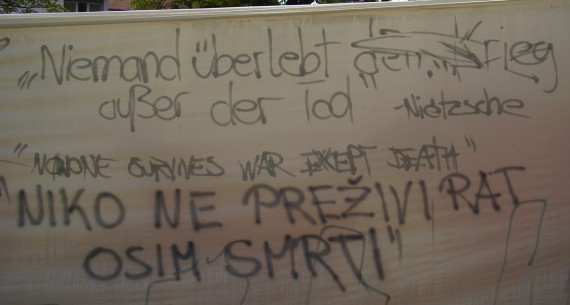 „Niemand überlebt den Krieg
außer der Tod" -Nietzsche
"NOONE SURVIVES WAR EXEPT DEATH"
"NIKO NE PREŽIVI RAT
OSIM SMRTI"